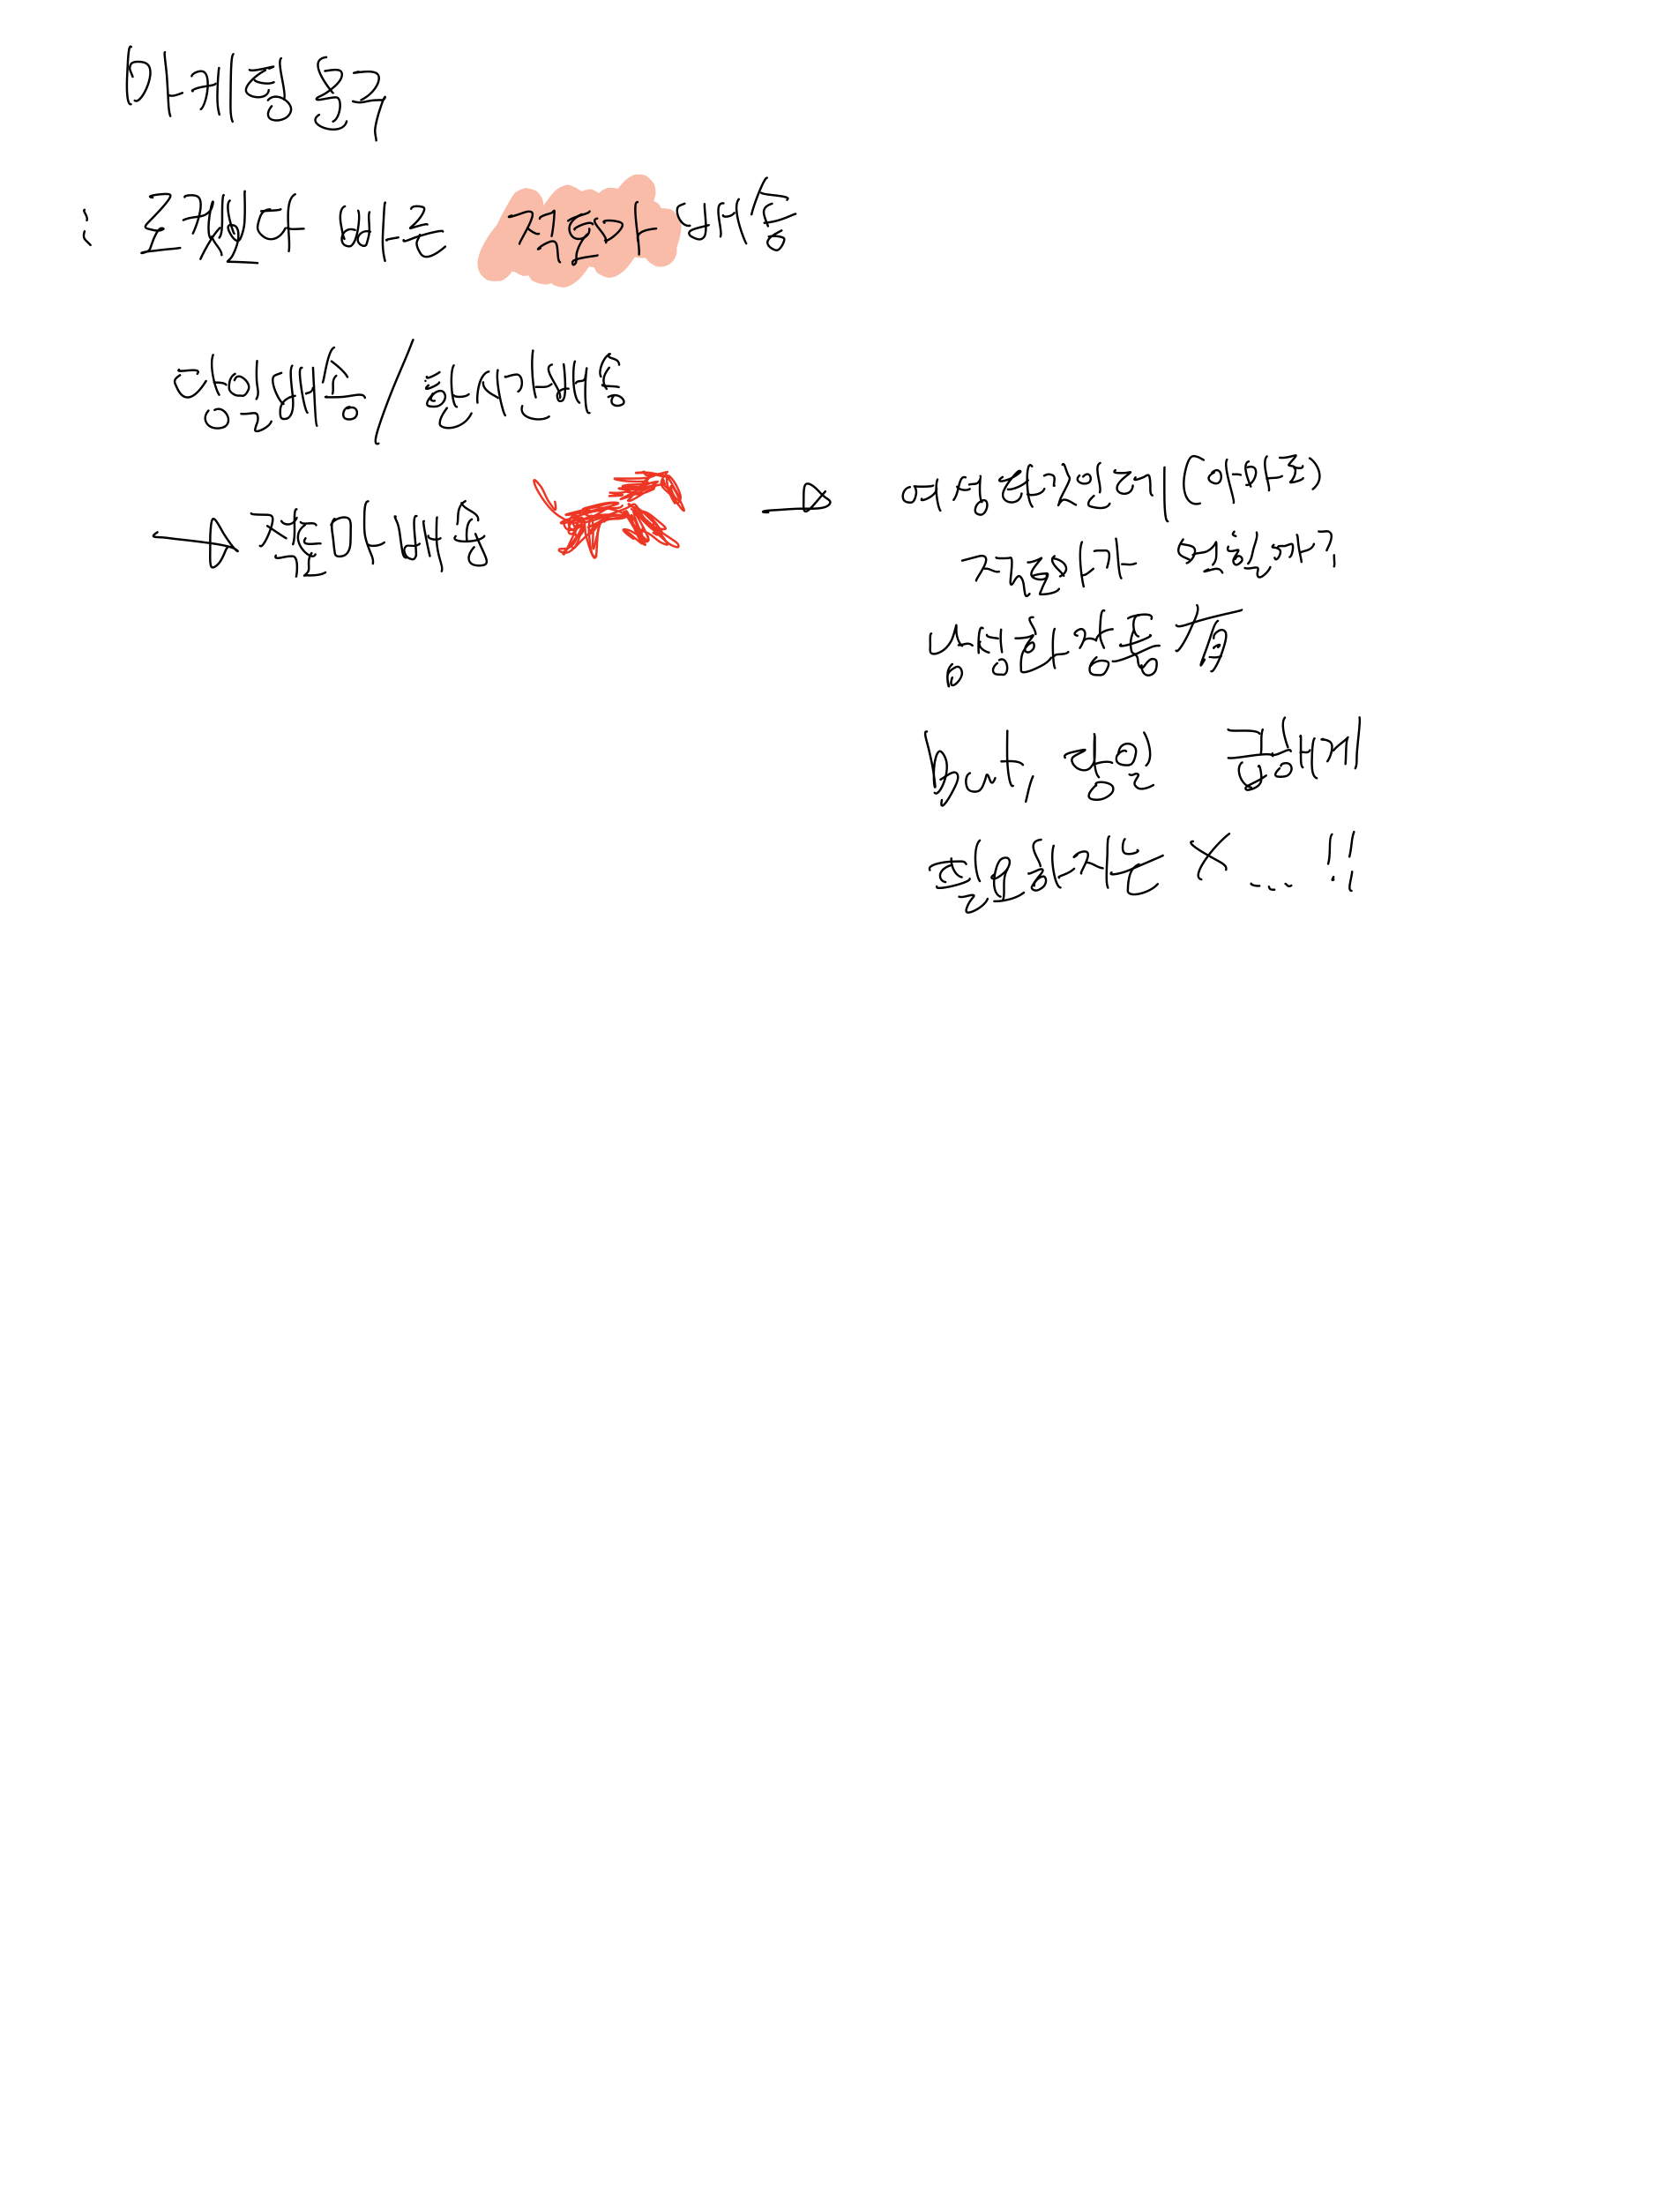 마케팅 문구
: 로켓보다 빠른 적토마 배송
당일배송/한시간배송
→ 적토마배송
→ 여성화장실에 (이마트)
적토마가 먹힐까?
남성화장품 有
but, 당일 급하게
필요하지는 X...!!